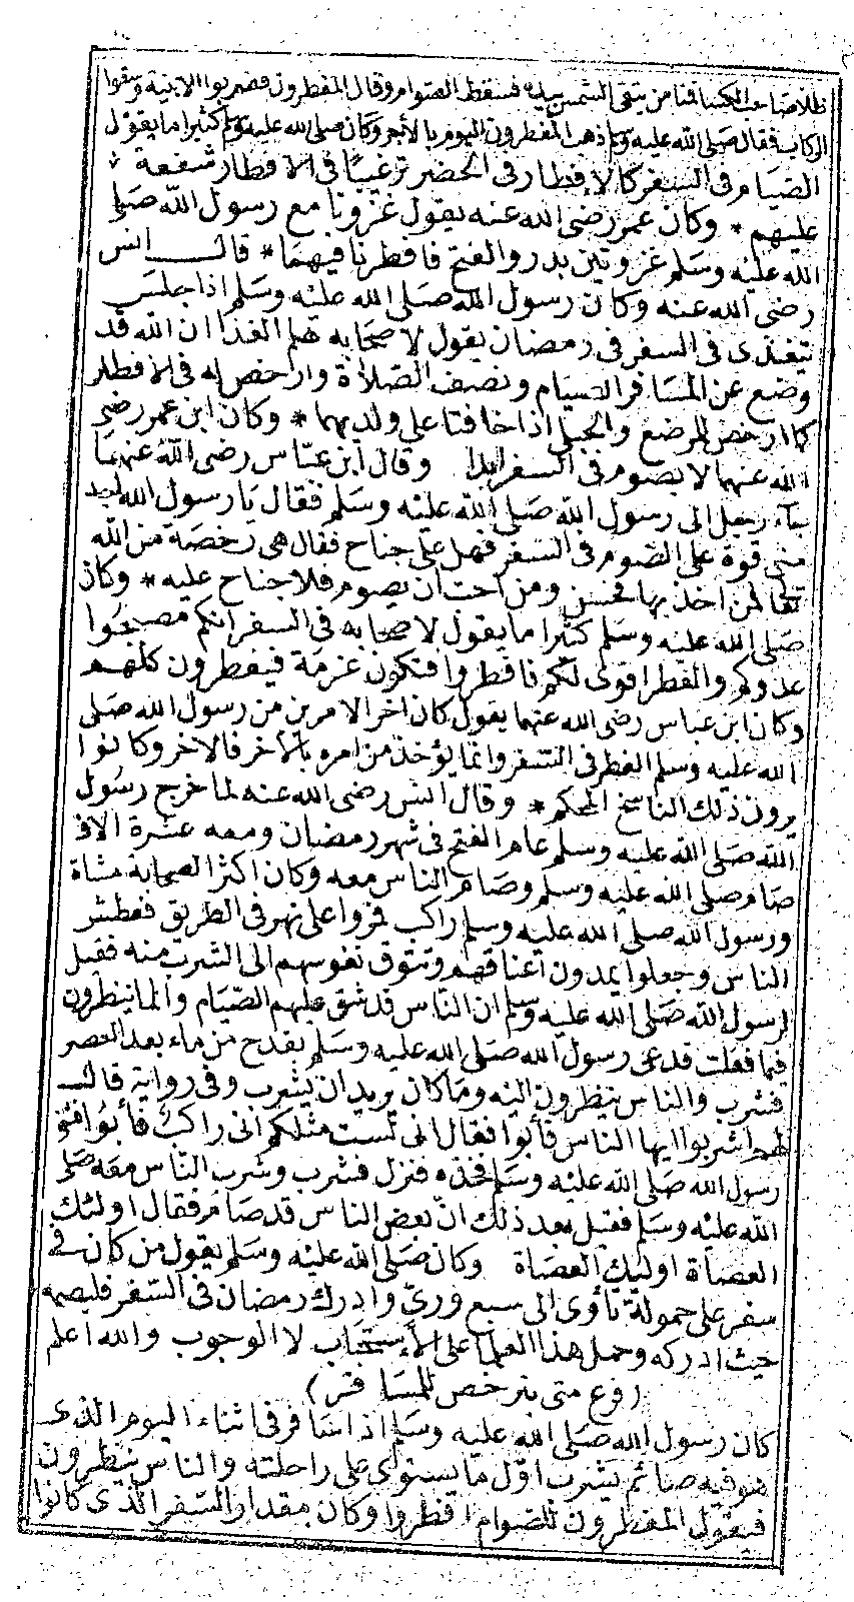 ظلا صاحب الكسا فمنا من يتقى الشمس بيده فسقط الصوام وقال المفطرون فضربوا الابنية وسقوا
الركاب فقال صلى الله عليه وسلم ذهب المفطرون اليوم بالأجر وكان صلى الله عليه وسلم كثيرا ما يقول
الصيام فى السفر كالإفطار فى الحضر ترغيبًا فى الافطار شفقة
عليهم * وكان عمر رضى الله عنه يقول غزونا مع رسول الله صلى
الله عليه وسلم غزوتين بدر والفتح فافطرنا فيهما * قال انس
رضى الله عنه وكان رسول الله صلى الله عليه وسلم اذا جلس
يتغذى فى السفر فى رمضان يقول لاصحابه هلم الغذا ان الله قد
وضع عن المسافر الصيام ونصف الصلاة وارخص له فى الافطار
كما ارخص للمرضع والحبلى اذا خافتا على ولديهما * وكان ابن عمر رضى
الله عنهما لا يصوم فى السفر ابدا وقال ابن عباس رضى الله عنهما
جاء رجل الى رسول الله صلى الله عليه وسلم فقال يا رسول الله اجد
منى قوة على الصوم فى السفر فهل على جناح فقال هى رخصة من الله
تعالى فمن اخذ بها فحسن ومن احب ان يصوم فلا جناح عليه * وكان
صلى الله عليه وسلم كثيرا ما يقول لاصحابه فى السفر انكم مصبحوا
عدوكم والفطر اقوى لكم فافطروا فتكون عزمة فيفطرون كلهم
وكان ابن عباس رضى الله عنهما يقول كان اخر الامرين من رسول الله صلى
الله عليه وسلم الفطر فى السفر وانما يؤخذ من امره بالأخر فالاخر وكانوا
يرون ذلك الناسخ المحكم * وقال انس رضى الله عنه لما خرج رسول
الله صلى الله عليه وسلم عام الفتح فى شهر رمضان ومعه عشرة الاف
صام صلى الله عليه وسلم وصام الناس معه وكان اكثر الصحابة مشاة
ورسول الله صلى الله عليه وسلم راكب فمروا على نهر فى الطريق فعطش
الناس وجعلوا يمدون اعناقهم وتتوق نفوسهم الى الشرب منه فقيل
لرسول الله صلى الله عليه وسلم ان الناس قد شق عليهم الصيام وانما ينظرون
فيما فعلت فدعى رسول الله صلى الله عليه وسلم بقدح من ماء بعد العصر
فشرب والناس ينظرون اليه وما كان يريد ان يشرب وفى رواية قال
لهم اشربوا ايها الناس فأبوا فقال انى لست مثلكم انى راكب فأبوا فثنى
رسول الله صلى الله عليه وسلم فخذه فنزل فشرب وشرب الناس معه صلى
الله عليه وسلم فقيل بعد ذلك ان بعض الناس قد صام فقال اولئك
العصاة اوليك العصاة وكان صلى الله عليه وسلم يقول من كان فى
سفر على حمولة تأوى الى سبع ورى وادرك رمضان فى السفر فليصمه
حيث ادركه وحمل هذا العلما على الأستحباب لا الوجوب والله اعلم
(فرع متى يترخص للمسافر)
كان رسول الله صلى الله عليه وسلم اذا سافر فى اثناء اليوم الذى
هو فيه صائم يشرب اول ما يستوى على راحلته والناس ينظرون
فيقول المفطرون للصوام افطروا وكان مقدار السفر الذى كانوا